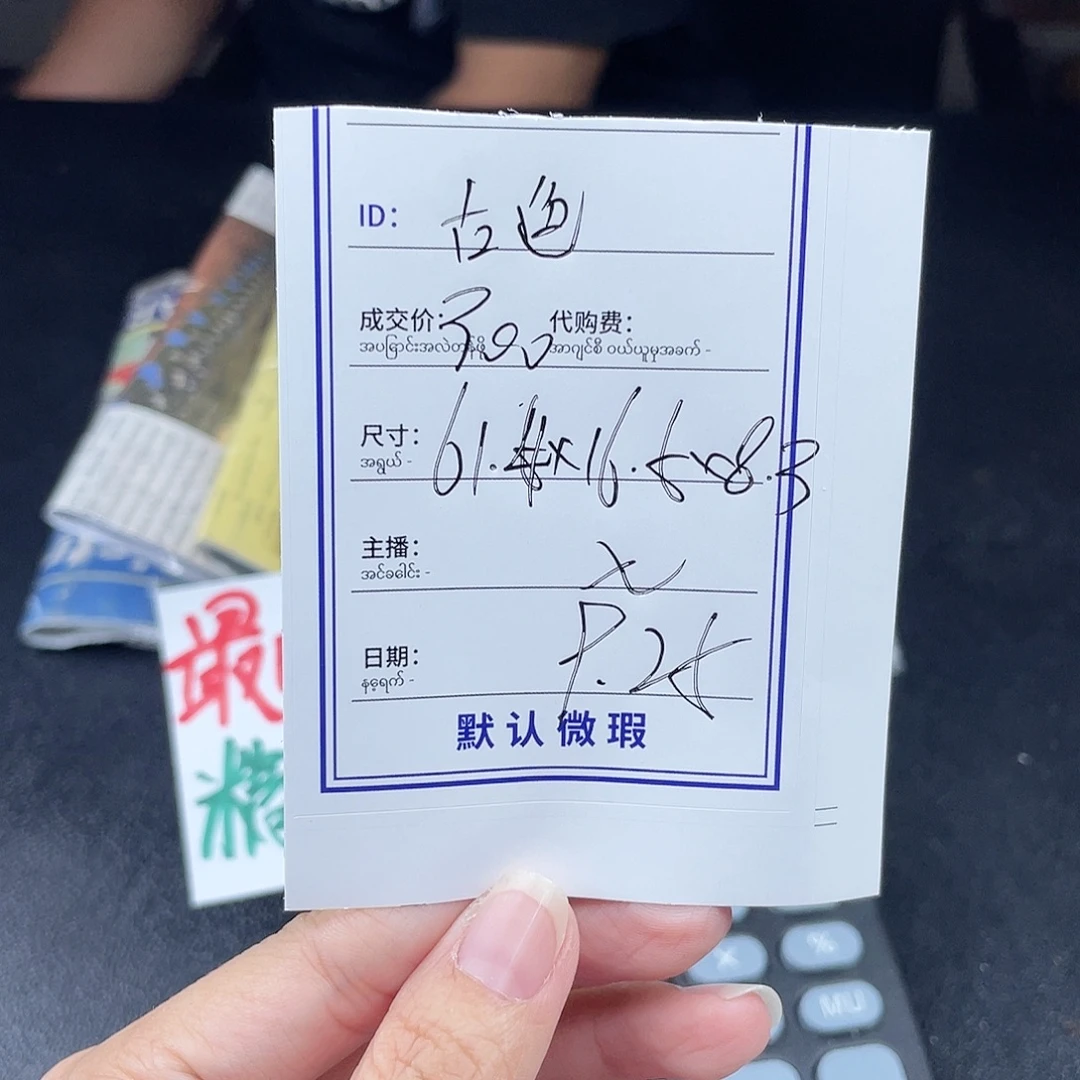 ID: 古色
成交价: 300 代购费:
အပြောင်းအလဲတန်ဖို့ အာဂျင်စီ ဝယ်ယူမှုအခက် -
尺寸: 61.4×16.5×8.3
အရွယ် -
主播:
အင်ခခေါင်း -
日期: 9.25
နေ့ရက် -
默认微瑕
最
精
%
MU